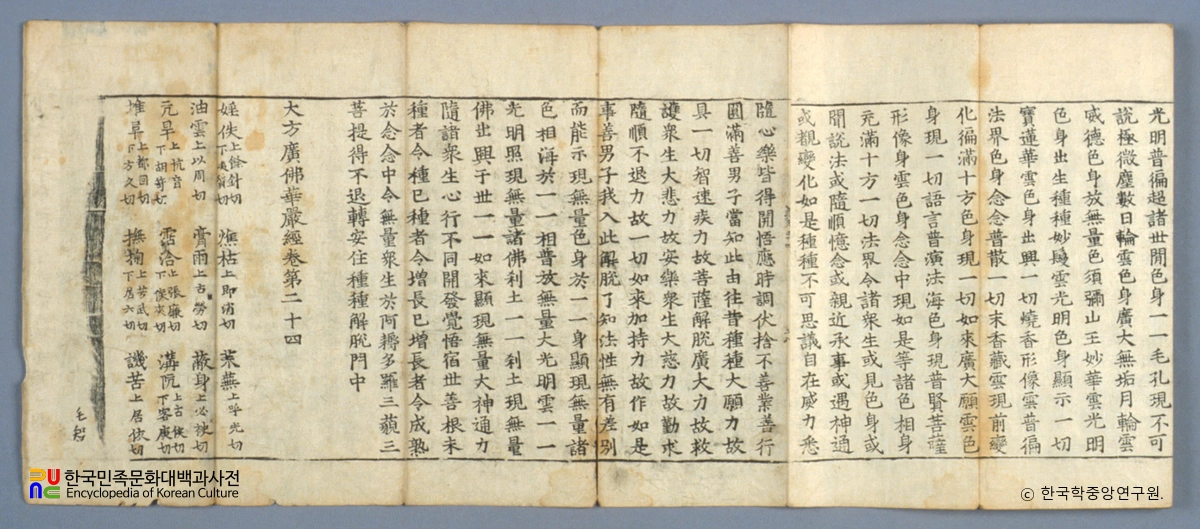 光明普徧超諸世間色身一一毛孔現不可
說極微塵數日輪雲色身廣大無垢月輪雲
威德色身放無量色須彌山王妙華雲光明
色身出生種種妙鬘雲光明色身顯示一切
寶蓮華雲色身出興一切燒香形像雲普徧
法界色身念念普散一切末香藏雲現前變
化徧滿十方色身現一切如來廣大願雲色
身現一切語言普演法海色身現普賢菩薩
形像身雲色身念念中現如是等諸色相身
充滿十方一切法界令諸衆生或見色身或
聞說法或隨順憶念或親近承事或遇神通
或覩變化如是種種不可思議自在威力悉
隨心樂皆得開悟應時調伏捨不善業善行
圓滿善男子當知此由往昔種種大願力故
具一切智速疾力故菩薩解脫廣大力故救
護衆生大悲力故安樂衆生大慈力故勤求
隨順不退力故一切如來加持力故作如是
事善男子我入此解脫了知法性無有差別
而能示現無量色身於一一身顯現無量諸
色相海於一一相普放無量大光明雲一一
光明照現無量諸佛刹土一一刹土現無量
佛出興于世一一如來顯現無量大神通力
隨諸衆生心行不同開發覺悟宿世善根未
種者令種已種者令增長已增長者令成熟
於念念中令無量衆生於阿耨多羅三藐三
菩提得不退轉安住種種解脫門中
大方廣佛華嚴經卷第二十四
婬佚上餘針切 燋枯上即消切 萊蕪上呼光切
油雲上以周切 膏雨上古勞切 蔽身上必袂切
亢旱上抗音 霑洽上張廉切下侯夾切 溝阬上古侯切下客庚切
堆阜上都回切下方久切 撫掬上芳武切下居六切 譏苦上居依切
한국민족문화대백과사전
Encyclopedia of Korean Culture
© 한국학중앙연구원.